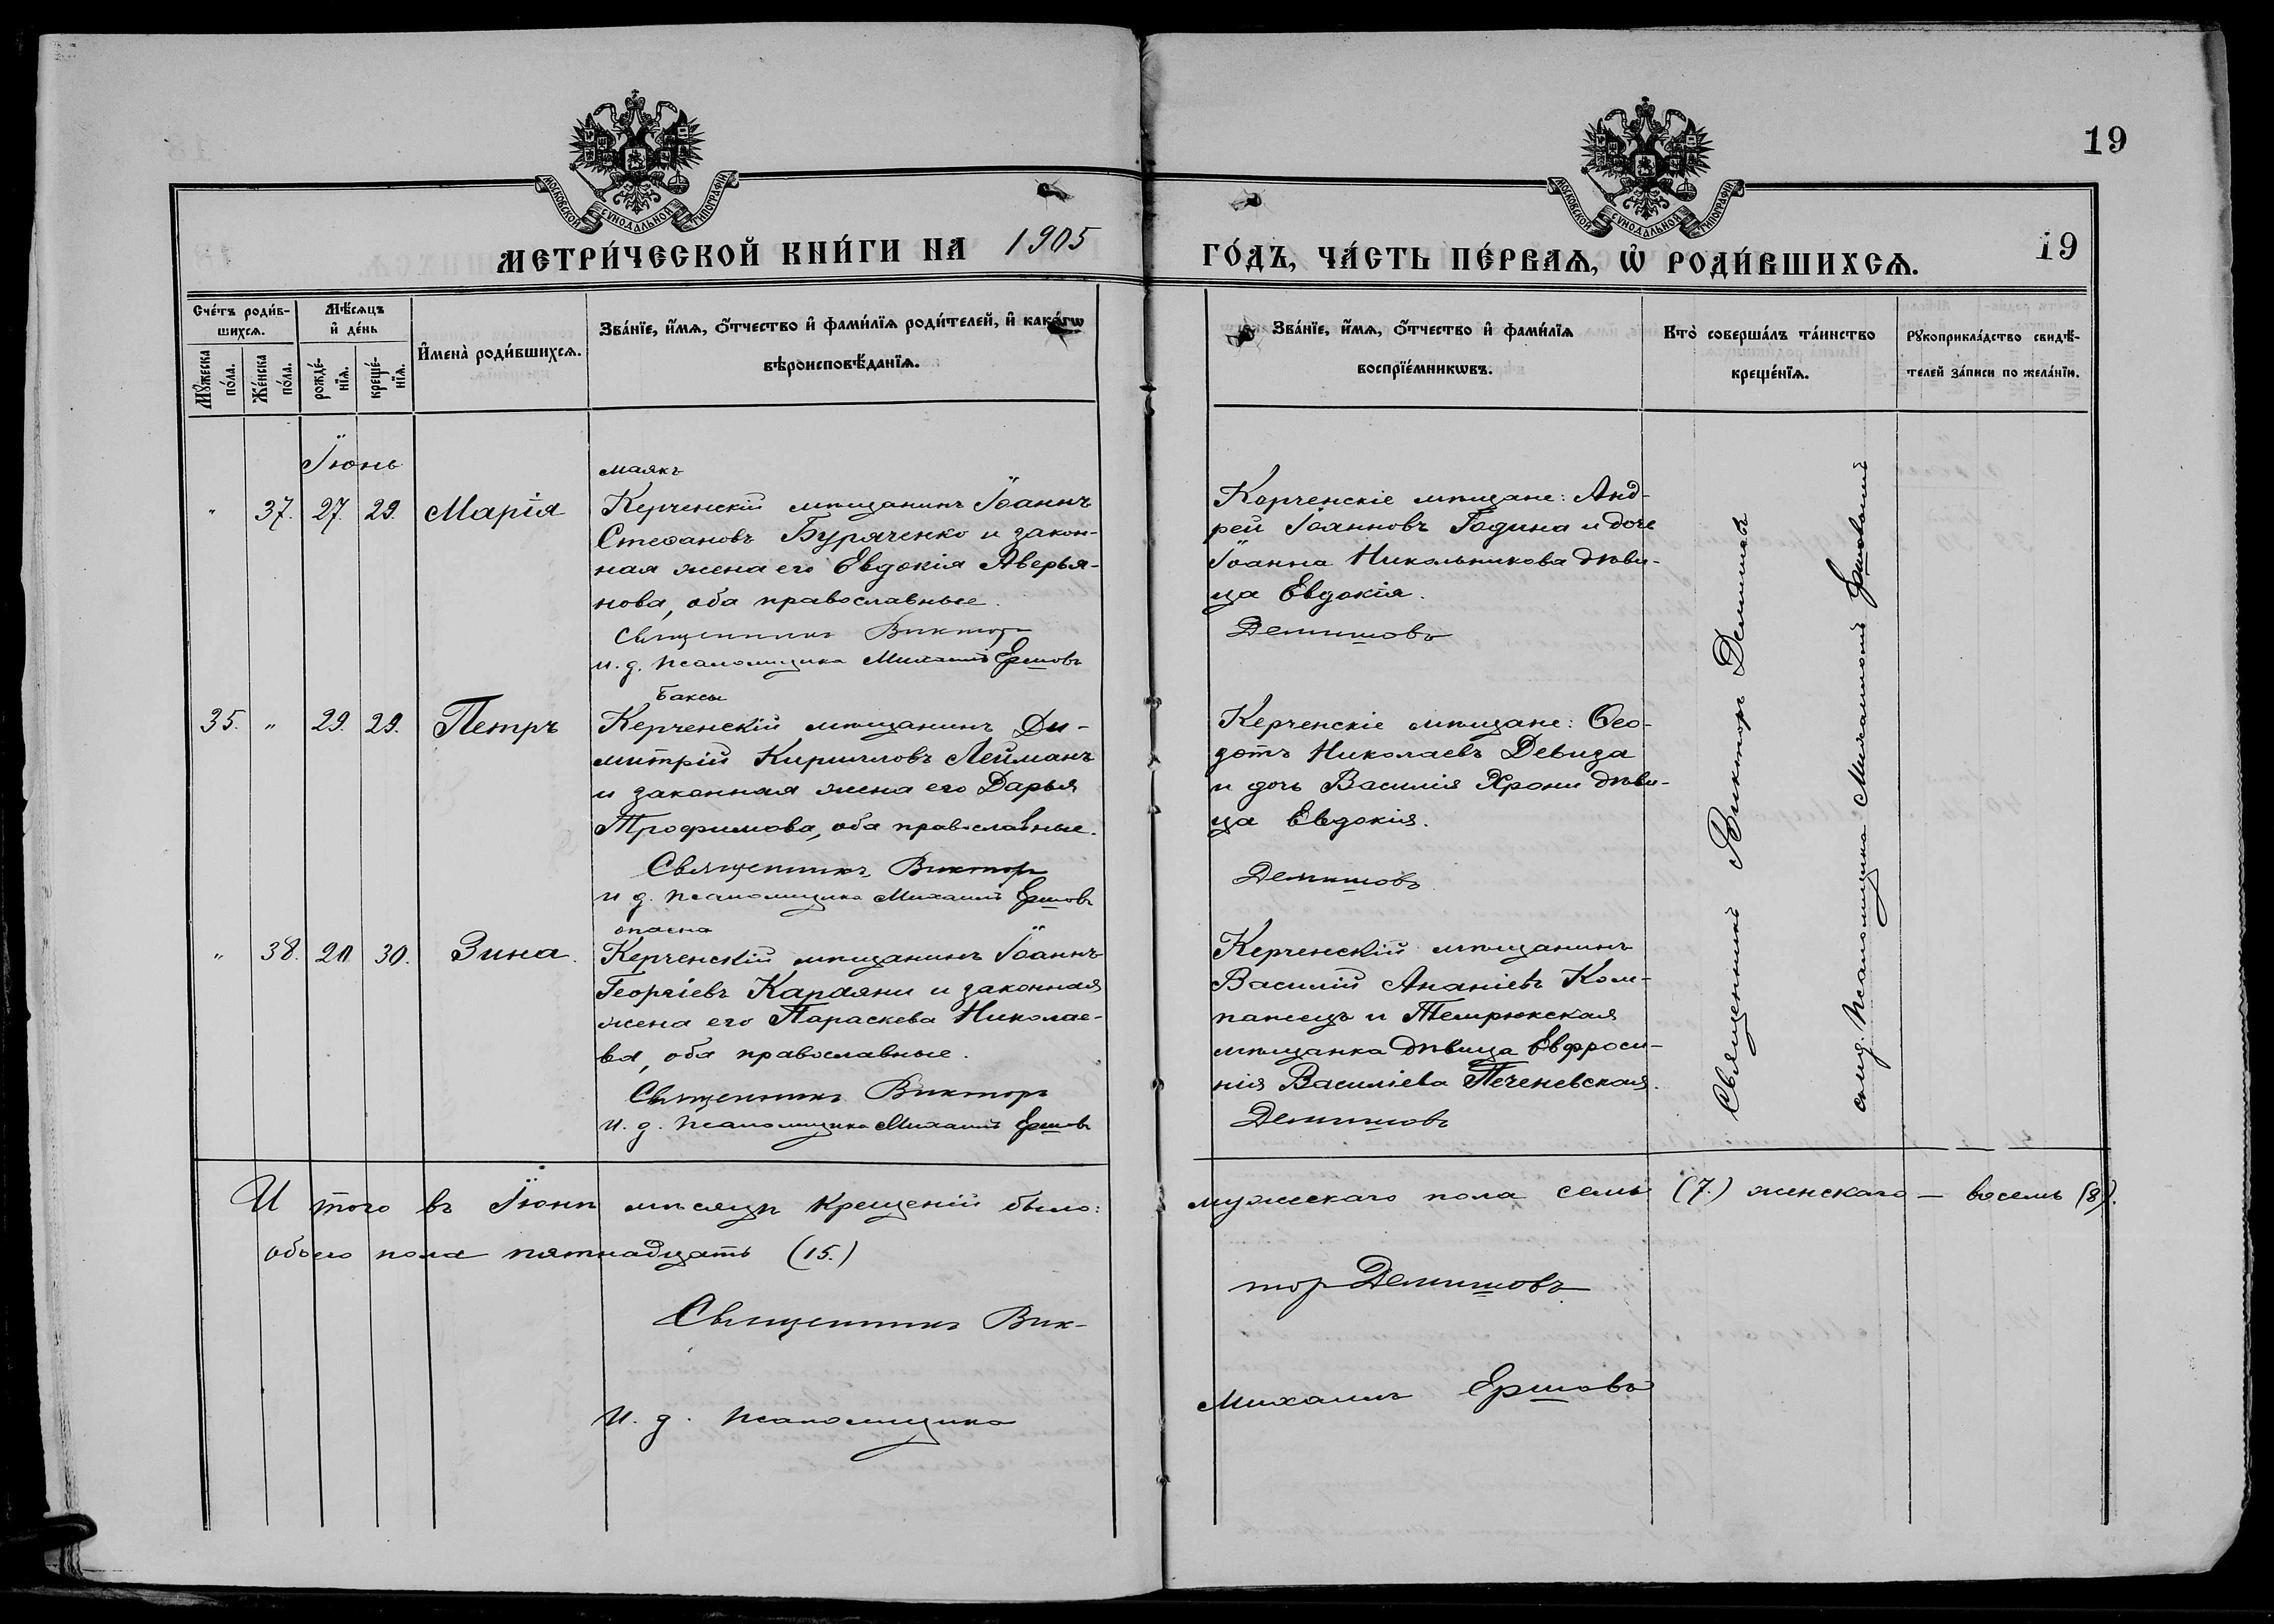 19
МОСКОВСКОЙ СѴНОДАЛЬНОЙ ТИПОГРАФІИ
МОСКОВСКОЙ СѴНОДАЛЬНОЙ ТИПОГРАФІИ
МЕТРИ́ЧЕСКОЙ КНИ́ГИ НА 1905
ГО́ДЪ, ЧА́СТЬ ПЕ́РВАѦ, Ѡ РОДИ́ВШИХСѦ.
19
Сче́тъ роди́в-
шихся.
Мѣ́сяцъ
и де́нь
Му́жеска
по́ла.
Же́нска
по́ла.
рожде́-
нїя.
креще́-
нїя.
Имена̀ роди́вшихся.
Зва́нїе, и́мя, о́тчество и фами́лїя роди́телей, и како́гѡ
вѣроисповѣ́данїя.
Зва́нїе, и́мя, о́тчество и фами́лїя
воспрїе́мникѡвъ.
Кто̀ соверша́лъ та́инство
креще́нїя.
Рукоприкла́дство свидѣ́-
телей за́писи по жела́нїи.
Іюнь
маякъ
" 37. 27. 29. Марія
Керченскій мѣщанинъ Іоаннъ
Стефановъ Буряченко и закон-
ная жена его Евдокія Аверья-
нова, оба православные.
Священникъ Викторъ
и. д. псаломщика Михаилъ Ершовъ
Керченскіе мѣщане: Анд-
рей Іоанновъ Година и дочь
Іоанна Никольникова дѣви-
ца Евдокія.
Демишовъ
Баксы
35. " 29. 29. Петръ
Керченскій мѣщанинъ Ди-
митрій Кирилловъ Лейманъ
и законная жена его Дарья
Трофимова, оба православные.
Священникъ Викторъ
и д. псаломщика Михаилъ Ершовъ
Керченскіе мѣщане: Ѳео-
дотъ Николаевъ Девиза
и дочь Василія Хрони дѣви-
ца Евдокія.
Демишовъ
опасна
" 38. 20 30. Зина.
Керченскій мѣщанинъ Іоаннъ
Георгіевъ Караяни и законная
жена его Параскева Николае-
ва, оба православные.
Священникъ Викторъ
И. д. псаломщика Михаилъ Ершовъ
Керченскій мѣщанинъ
Василій Ананіевъ Ком-
панецъ и Темрюкская
мѣщанка дѣвица Евфроси-
нія Василіева Печеневская.
Демишовъ
Священникъ Викторъ Демишовъ
псаломщика Михаилъ Ершовъ
Итого въ Іюнѣ мѣсяцѣ крещеній было: мужескаго пола семь (7.) женскаго — восемь (8).
обоего пола пятнадцать (15.)
Священникъ Вик-
тор Демишовъ
И. д. псаломщика
Михаилъ Ершовъ